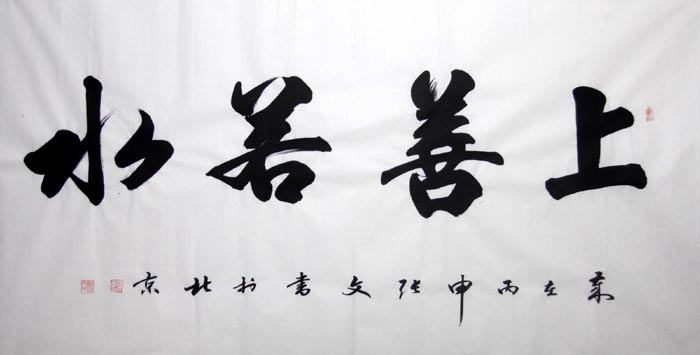 上善若水
岁在丙申张文书于北京